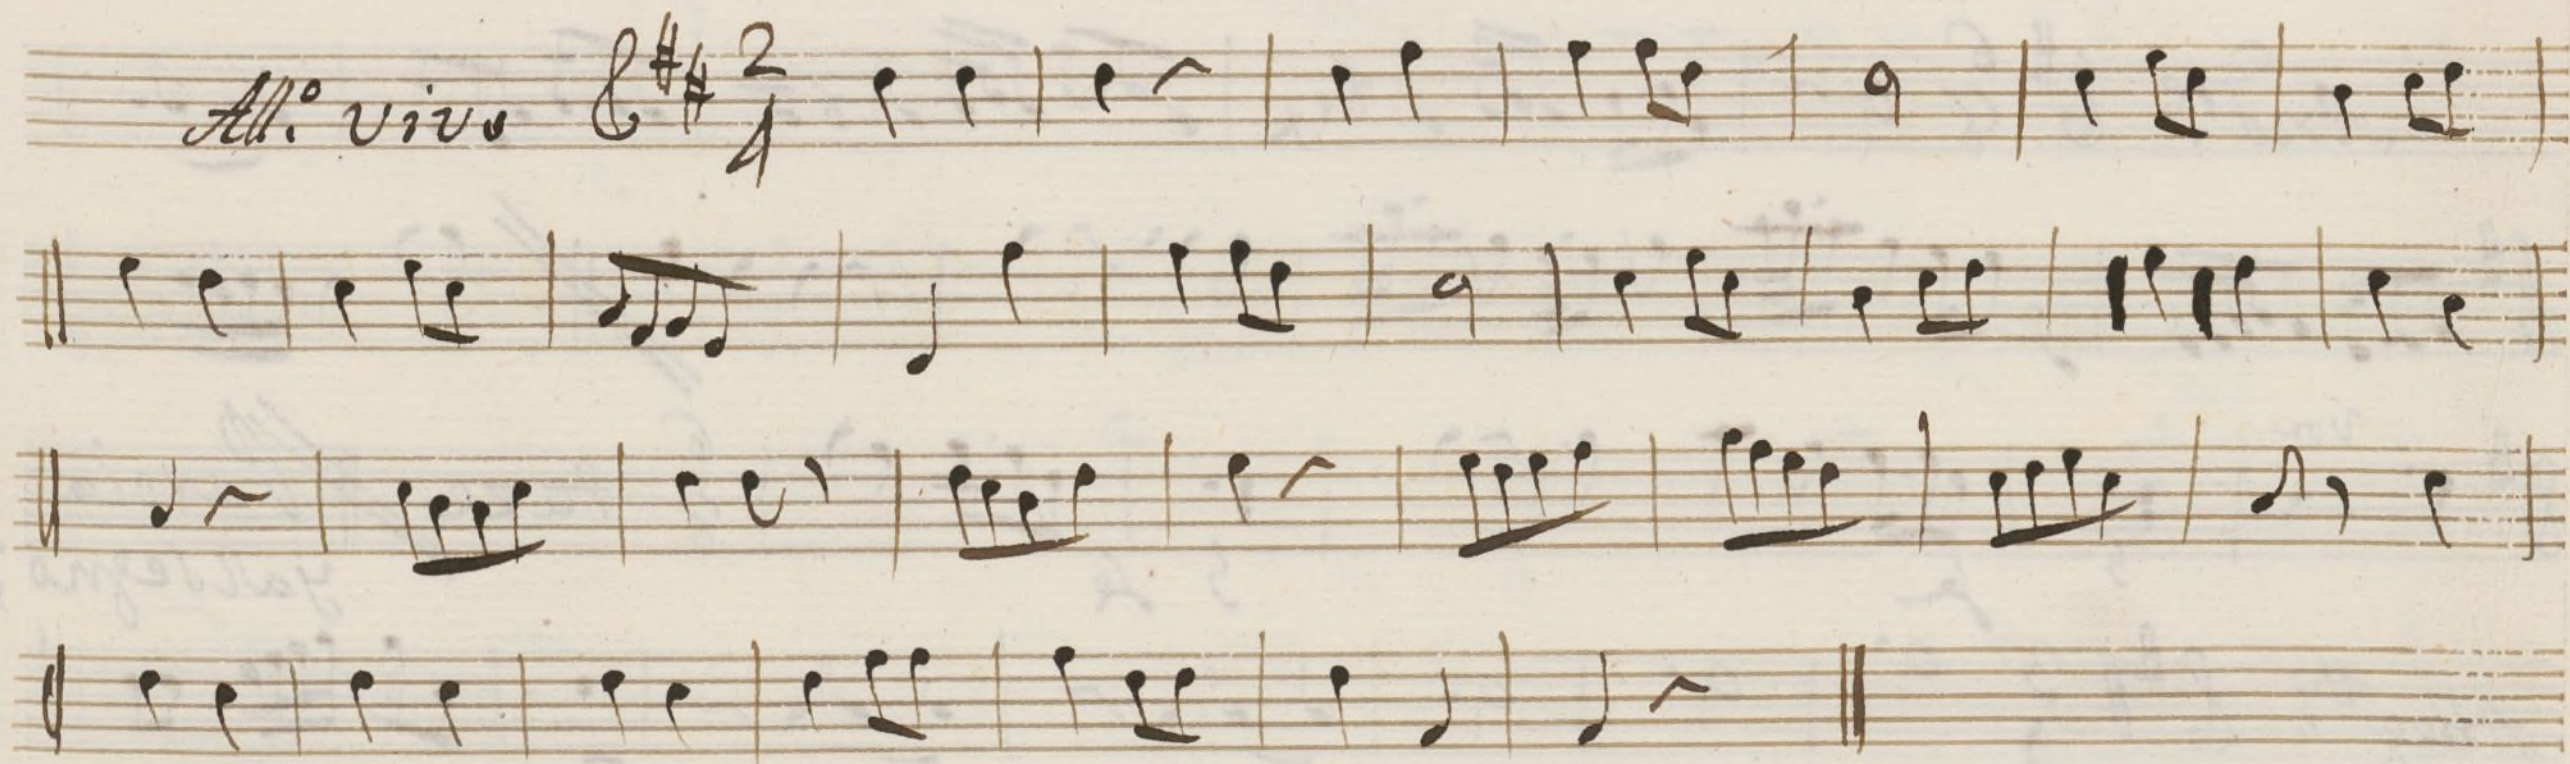 All.º vivo 2
4